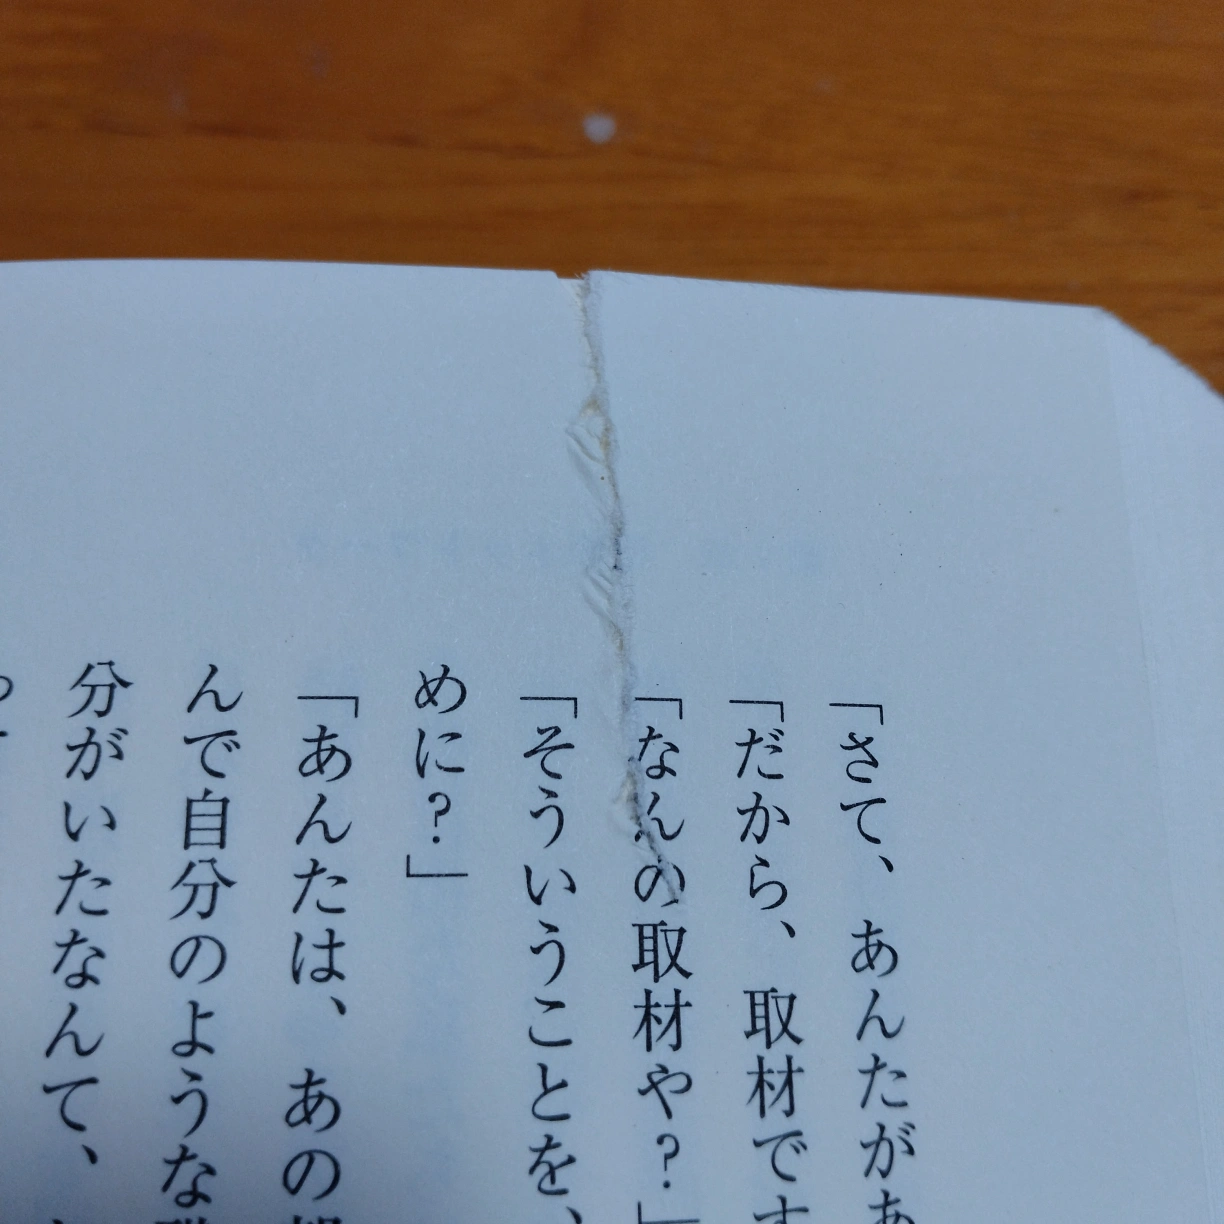 「さて、あんたがあ
「だから、取材です
「なんの取材や？」
「そういうことを、
めに？」
「あんたは、あの
んで自分のような
分がいたなんて、